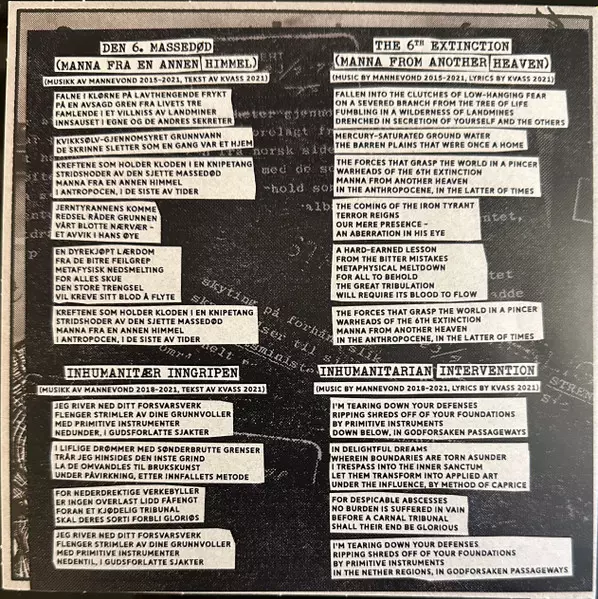 DEN 6. MASSEDØD
(MANNA FRA EN ANNEN HIMMEL)
(MUSIKK AV MANNEVOND 2015-2021, TEKST AV KVASS 2021)
FALNE I KLØRNE PÅ LAVTHENGENDE FRYKT
PÅ EN AVSAGD GREN FRA LIVETS TRE
FAMLENDE I ET VILLNISS AV LANDMINER
INNSAUSET I EGNE OG DE ANDRES SEKRETER
KVIKKSØLV-GJENNOMSYRET GRUNNVANN
DE SKRINNE SLETTER SOM EN GANG VAR ET HJEM
KREFTENE SOM HOLDER KLODEN I EN KNIPETANG
STRIDSHODER AV DEN SJETTE MASSEDØD
MANNA FRA EN ANNEN HIMMEL
I ANTROPOCEN, I DE SISTE AV TIDER
JERNTYRANNENS KOMME
REDSEL RÅDER GRUNNEN
VÅRT BLOTTE NÆRVÆR -
ET AVVIK I HANS ØYE
EN DYREKJØPT LÆRDOM
FRA DE BITRE FEILGREP
METAFYSISK NEDSMELTING
FOR ALLES SKUE
DEN STORE TRENGSEL
VIL KREVE SITT BLOD Å FLYTE
KREFTENE SOM HOLDER KLODEN I EN KNIPETANG
STRIDSHODER AV DEN SJETTE MASSEDØD
MANNA FRA EN ANNEN HIMMEL
I ANTROPOCEN, I DE SISTE AV TIDER
INHUMANITÆR INNGRIPEN
(MUSIKK AV MANNEVOND 2018-2021, TEKST AV KVASS 2021)
JEG RIVER NED DITT FORSVARSVERK
FLENGER STRIMLER AV DINE GRUNNVOLLER
MED PRIMITIVE INSTRUMENTER
NEDUNDER, I GUDSFORLATTE SJAKTER
I LIFLIGE DRØMMER MED SØNDERBRUTTE GRENSER
TRÅR JEG HINSIDES DEN INSTE GRIND
LA DE OMVANDLES TIL BRUKSKUNST
UNDER PÅVIRKNING, ETTER INNFALLETS METODE
FOR NEDERDREKTIGE VERKEBYLLER
ER INGEN OVERLAST LIDD FÅFENGT
FORAN ET KJØDELIG TRIBUNAL
SKAL DERES SORTI FORBLI GLORIØS
JEG RIVER NED DITT FORSVARSVERK
FLENGER STRIMLER AV DINE GRUNNVOLLER
MED PRIMITIVE INSTRUMENTER
NEDENTIL, I GUDSFORLATTE SJAKTER
THE 6TH EXTINCTION
(MANNA FROM ANOTHER HEAVEN)
(MUSIC BY MANNEVOND 2015-2021, LYRICS BY KVASS 2021)
FALLEN INTO THE CLUTCHES OF LOW-HANGING FEAR
ON A SEVERED BRANCH FROM THE TREE OF LIFE
FUMBLING IN A WILDERNESS OF LANDMINES
DRENCHED IN SECRETION OF YOURSELF AND THE OTHERS
MERCURY-SATURATED GROUND WATER
THE BARREN PLAINS THAT WERE ONCE A HOME
THE FORCES THAT GRASP THE WORLD IN A PINCER
WARHEADS OF THE 6TH EXTINCTION
MANNA FROM ANOTHER HEAVEN
IN THE ANTHROPOCENE, IN THE LATTER OF TIMES
THE COMING OF THE IRON TYRANT
TERROR REIGNS
OUR MERE PRESENCE -
AN ABERRATION IN HIS EYE
A HARD-EARNED LESSON
FROM THE BITTER MISTAKES
METAPHYSICAL MELTDOWN
FOR ALL TO BEHOLD
THE GREAT TRIBULATION
WILL REQUIRE ITS BLOOD TO FLOW
THE FORCES THAT GRASP THE WORLD IN A PINCER
WARHEADS OF THE 6TH EXTINCTION
MANNA FROM ANOTHER HEAVEN
IN THE ANTHROPOCENE, IN THE LATTER OF TIMES
INHUMANITARIAN INTERVENTION
(MUSIC BY MANNEVOND 2018-2021, LYRICS BY KVASS 2021)
I'M TEARING DOWN YOUR DEFENSES
RIPPING SHREDS OFF OF YOUR FOUNDATIONS
BY PRIMITIVE INSTRUMENTS
DOWN BELOW, IN GODFORSAKEN PASSAGEWAYS
IN DELIGHTFUL DREAMS
WHEREIN BOUNDARIES ARE TORN ASUNDER
I TRESPASS INTO THE INNER SANCTUM
LET THEM TRANSFORM INTO APPLIED ART
UNDER THE INFLUENCE, BY METHOD OF CAPRICE
FOR DESPICABLE ABSCESSES
NO BURDEN IS SUFFERED IN VAIN
BEFORE A CARNAL TRIBUNAL
SHALL THEIR END BE GLORIOUS
I'M TEARING DOWN YOUR DEFENSES
RIPPING SHREDS OFF OF YOUR FOUNDATIONS
BY PRIMITIVE INSTRUMENTS
IN THE NETHER REGIONS, IN GODFORSAKEN PASSAGEWAYS
skyting på forhånd
slik